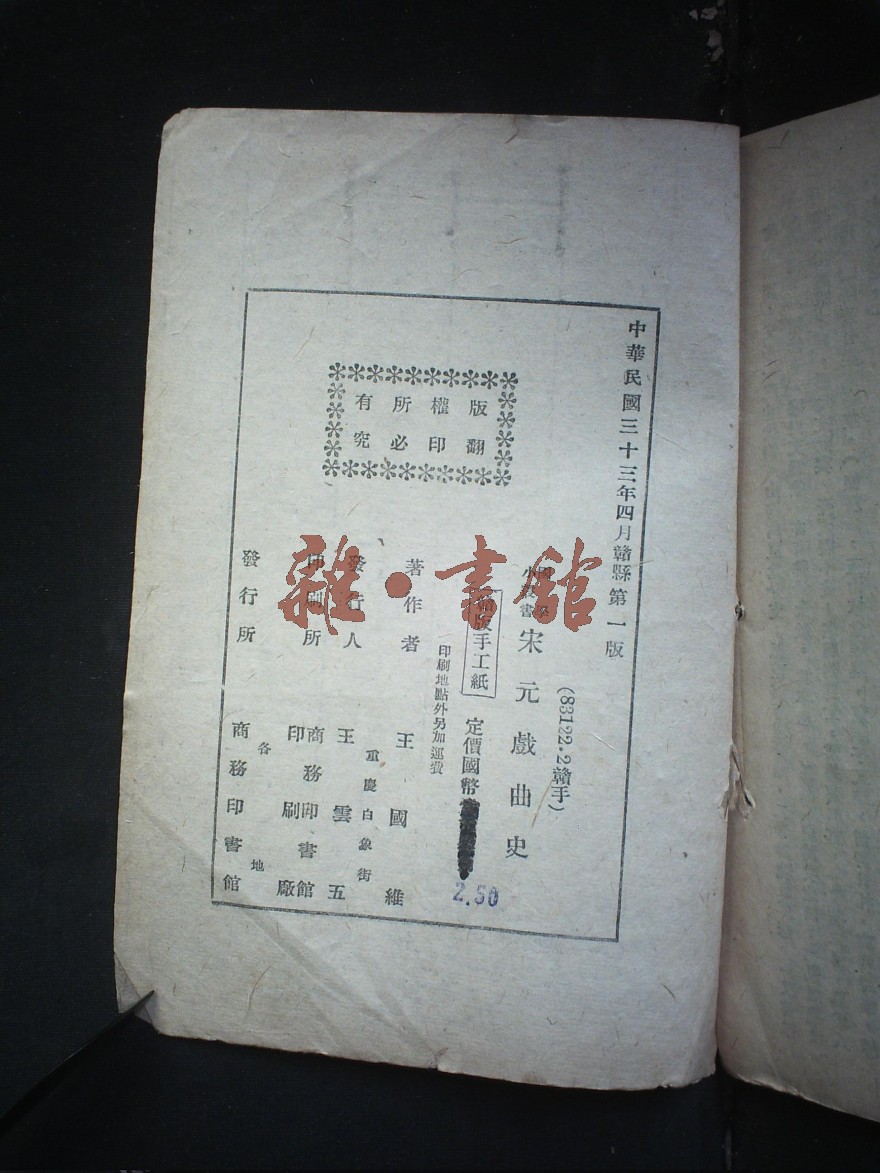 中華民國三十三年四月贛縣第一版
(83122.2贛手)
宋元戲曲史
版權所有
翻印必究
手工紙
定價國幣
2.50
印刷地點外另加運費
著作者 王國維
發行人 王雲五
重慶白象街
印刷所 商務印書館
印刷廠
發行所 商務印書館
各地
雜·書館